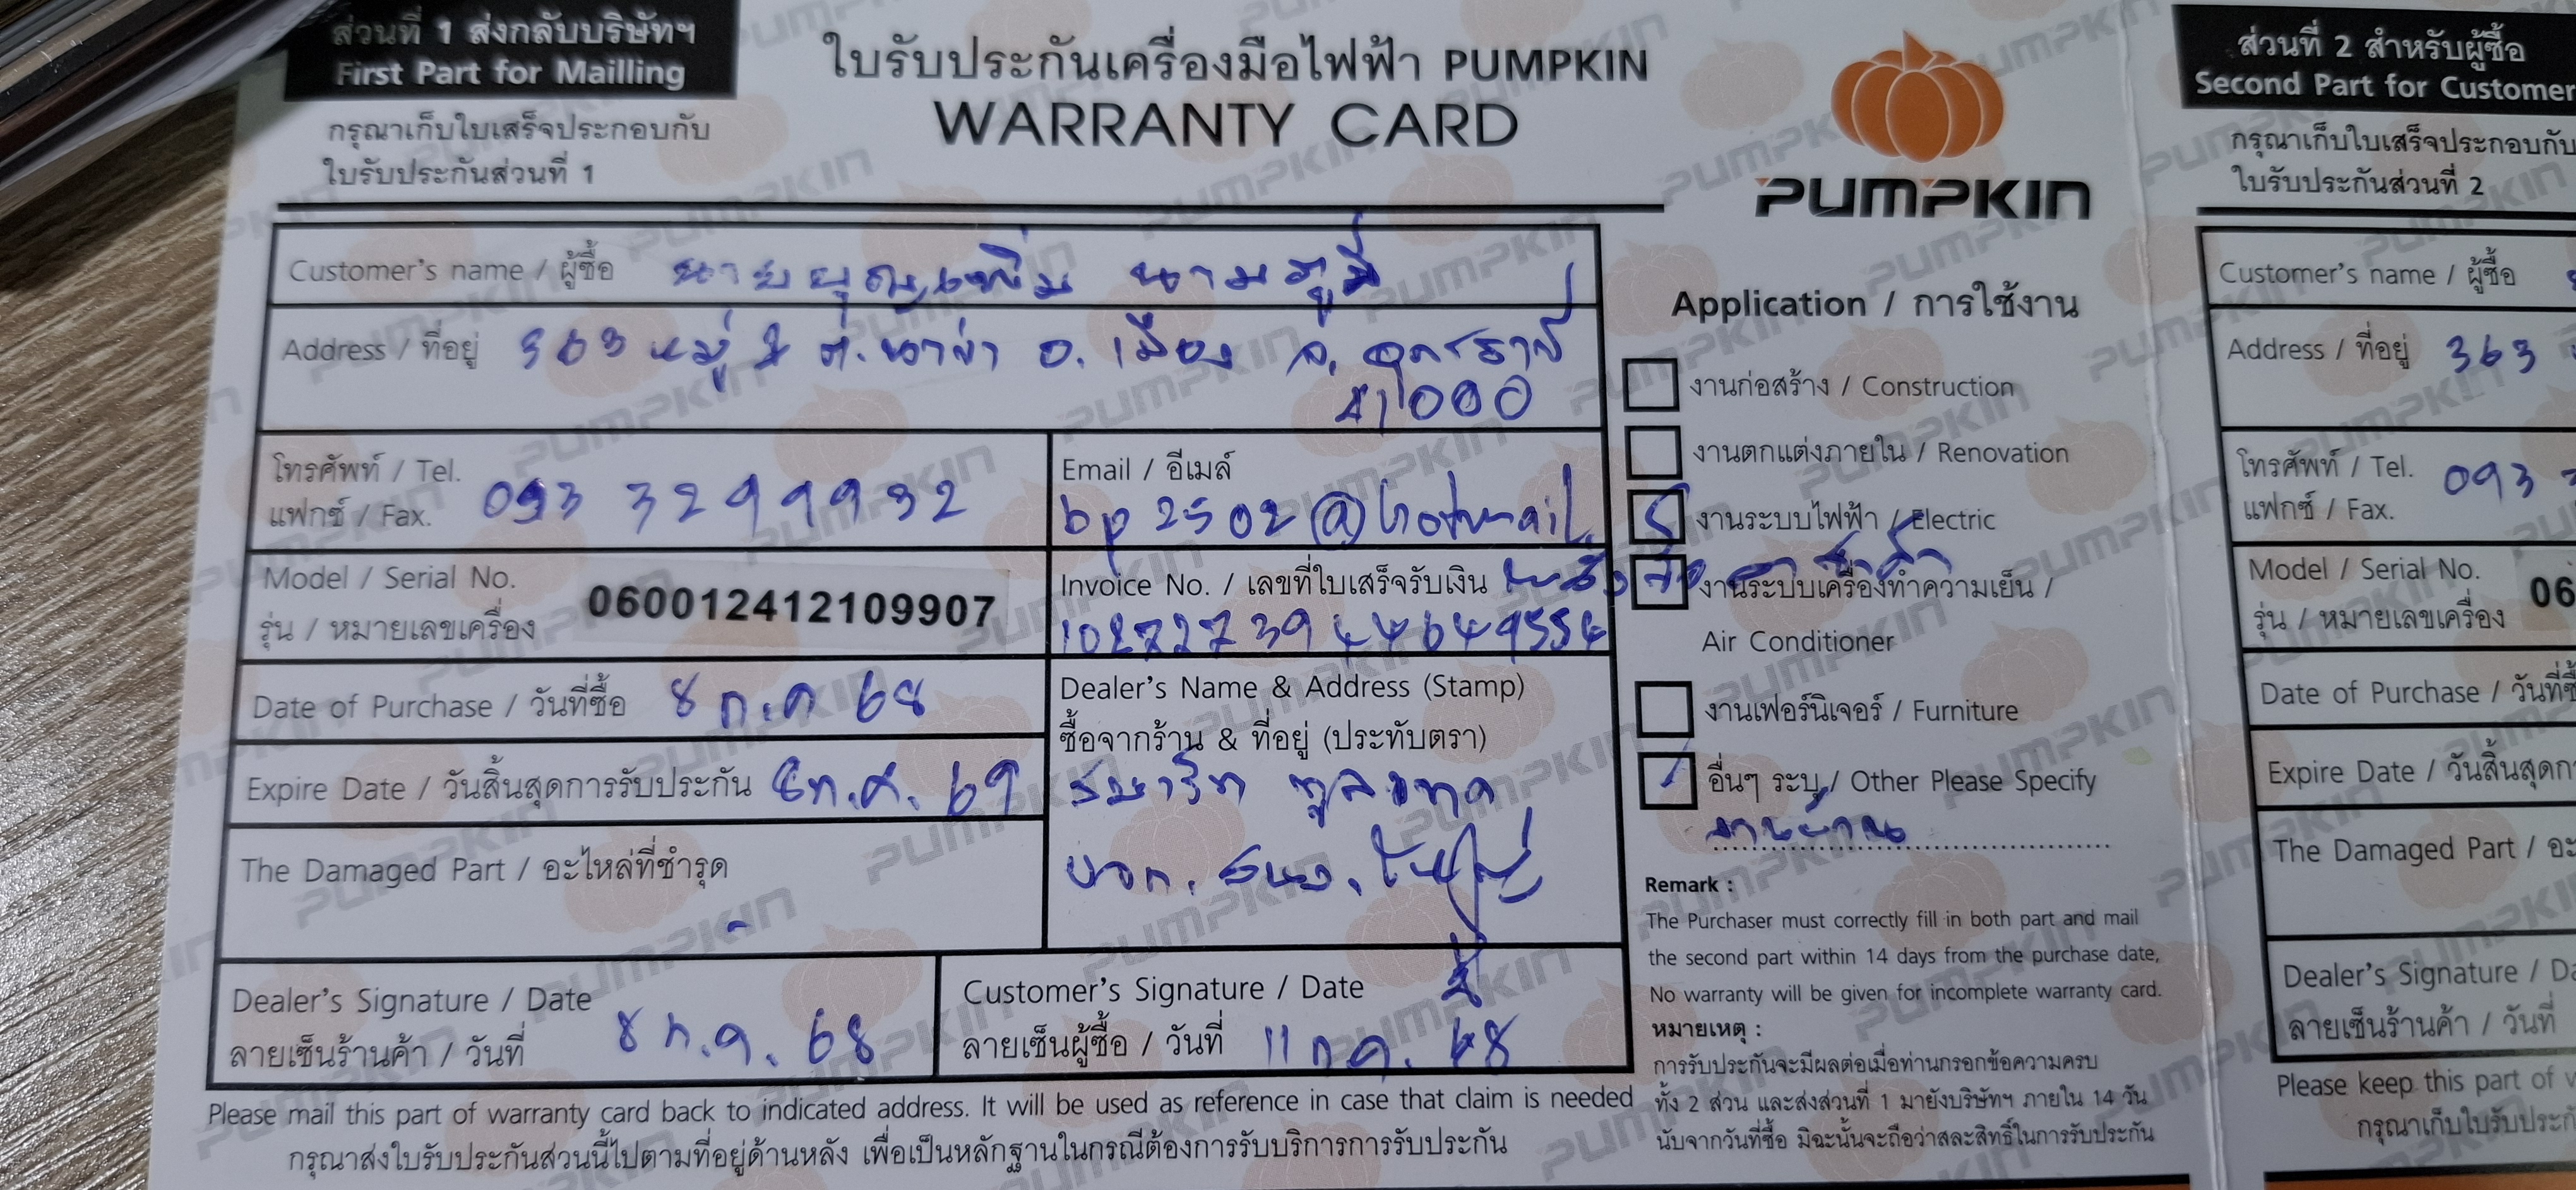 ส่วนที่ 1 ส่งกลับบริษัทฯ
First Part for Mailling
กรุณาเก็บใบเสร็จประกอบกับ
ใบรับประกันส่วนที่ 1
ใบรับประกันเครื่องมือไฟฟ้า PUMPKIN
WARRANTY CARD
PUMPKIN
Customer's name / ผู้ซื้อ นายบุญเพิ่ม นามภูมี
Address / ที่อยู่ 363 หมู่ 2 ต.นาข่า อ.เมือง จ.อุดรธานี
41000
โทรศัพท์ / Tel.
แฟกซ์ / Fax. 093 3299932
Email / อีเมล์
bp2502@hotmail.
Model / Serial No.
รุ่น / หมายเลขเครื่อง 060012412109907
Invoice No. / เลขที่ใบเสร็จรับเงิน
1027273944649554
Date of Purchase / วันที่ซื้อ 8 ก.ค 68
Expire Date / วันสิ้นสุดการรับประกัน 8 ก.ค. 69
The Damaged Part / อะไหล่ที่ชำรุด
-
Dealer's Name & Address (Stamp)
ซื้อจากร้าน & ที่อยู่ (ประทับตรา)
Dealer's Signature / Date
ลายเซ็นร้านค้า / วันที่ 8 ก.ค. 68
Customer's Signature / Date
ลายเซ็นผู้ซื้อ / วันที่ 11 ก.ค. 68
Please mail this part of warranty card back to indicated address. It will be used as reference in case that claim is needed
กรุณาส่งใบรับประกันส่วนนี้ไปตามที่อยู่ด้านหลัง เพื่อเป็นหลักฐานในกรณีต้องการรับบริการการรับประกัน
Application / การใช้งาน
งานก่อสร้าง / Construction
งานตกแต่งภายใน / Renovation
งานระบบไฟฟ้า / Electric
งานระบบเครื่องทำความเย็น /
Air Conditioner
งานเฟอร์นิเจอร์ / Furniture
อื่นๆ ระบุ / Other Please Specify
Remark :
The Purchaser must correctly fill in both part and mail
the second part within 14 days from the purchase date,
No warranty will be given for incomplete warranty card.
หมายเหตุ :
การรับประกันจะมีผลต่อเมื่อท่านกรอกข้อความครบ
ทั้ง 2 ส่วน และส่งส่วนที่ 1 มายังบริษัทฯ ภายใน 14 วัน
นับจากวันที่ซื้อ มิฉะนั้นจะถือว่าสละสิทธิ์ในการรับประกัน
ส่วนที่ 2 สำหรับผู้ซื้อ
Second Part for Customer
กรุณาเก็บใบเสร็จประกอบกับ
ใบรับประกันส่วนที่ 2
Customer's name / ผู้ซื้อ
Address / ที่อยู่ 363
โทรศัพท์ / Tel.
แฟกซ์ / Fax. 093
Model / Serial No.
รุ่น / หมายเลขเครื่อง 06
Date of Purchase / วันที่ซื้อ
Expire Date / วันสิ้นสุดก
The Damaged Part / อะ
Dealer's Signature / Da
ลายเซ็นร้านค้า / วันที่
Please keep this part of
กรุณาเก็บใบรับประกัน